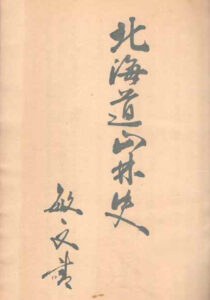 北海道山林史
敏文書